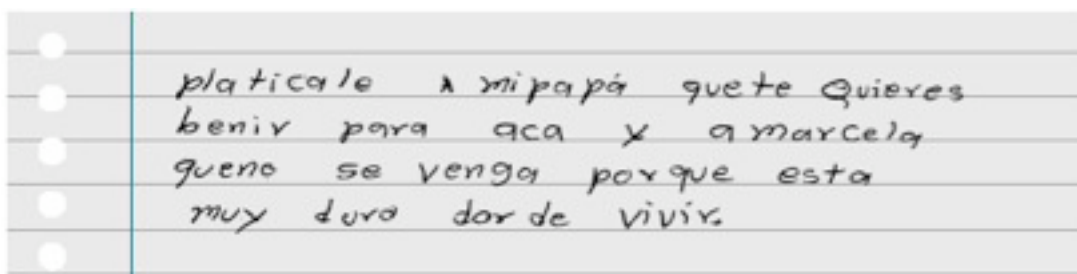 platicale A mi papá que te Quieres
benir para aca y a marcela
que no se venga porque esta
muy duro dor de vivir.